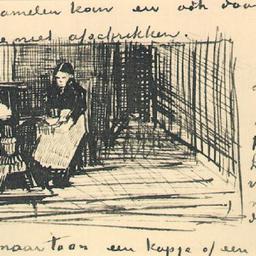 amelen kan en ook daar
e niet afschrikken.
maar toon een kapje of een